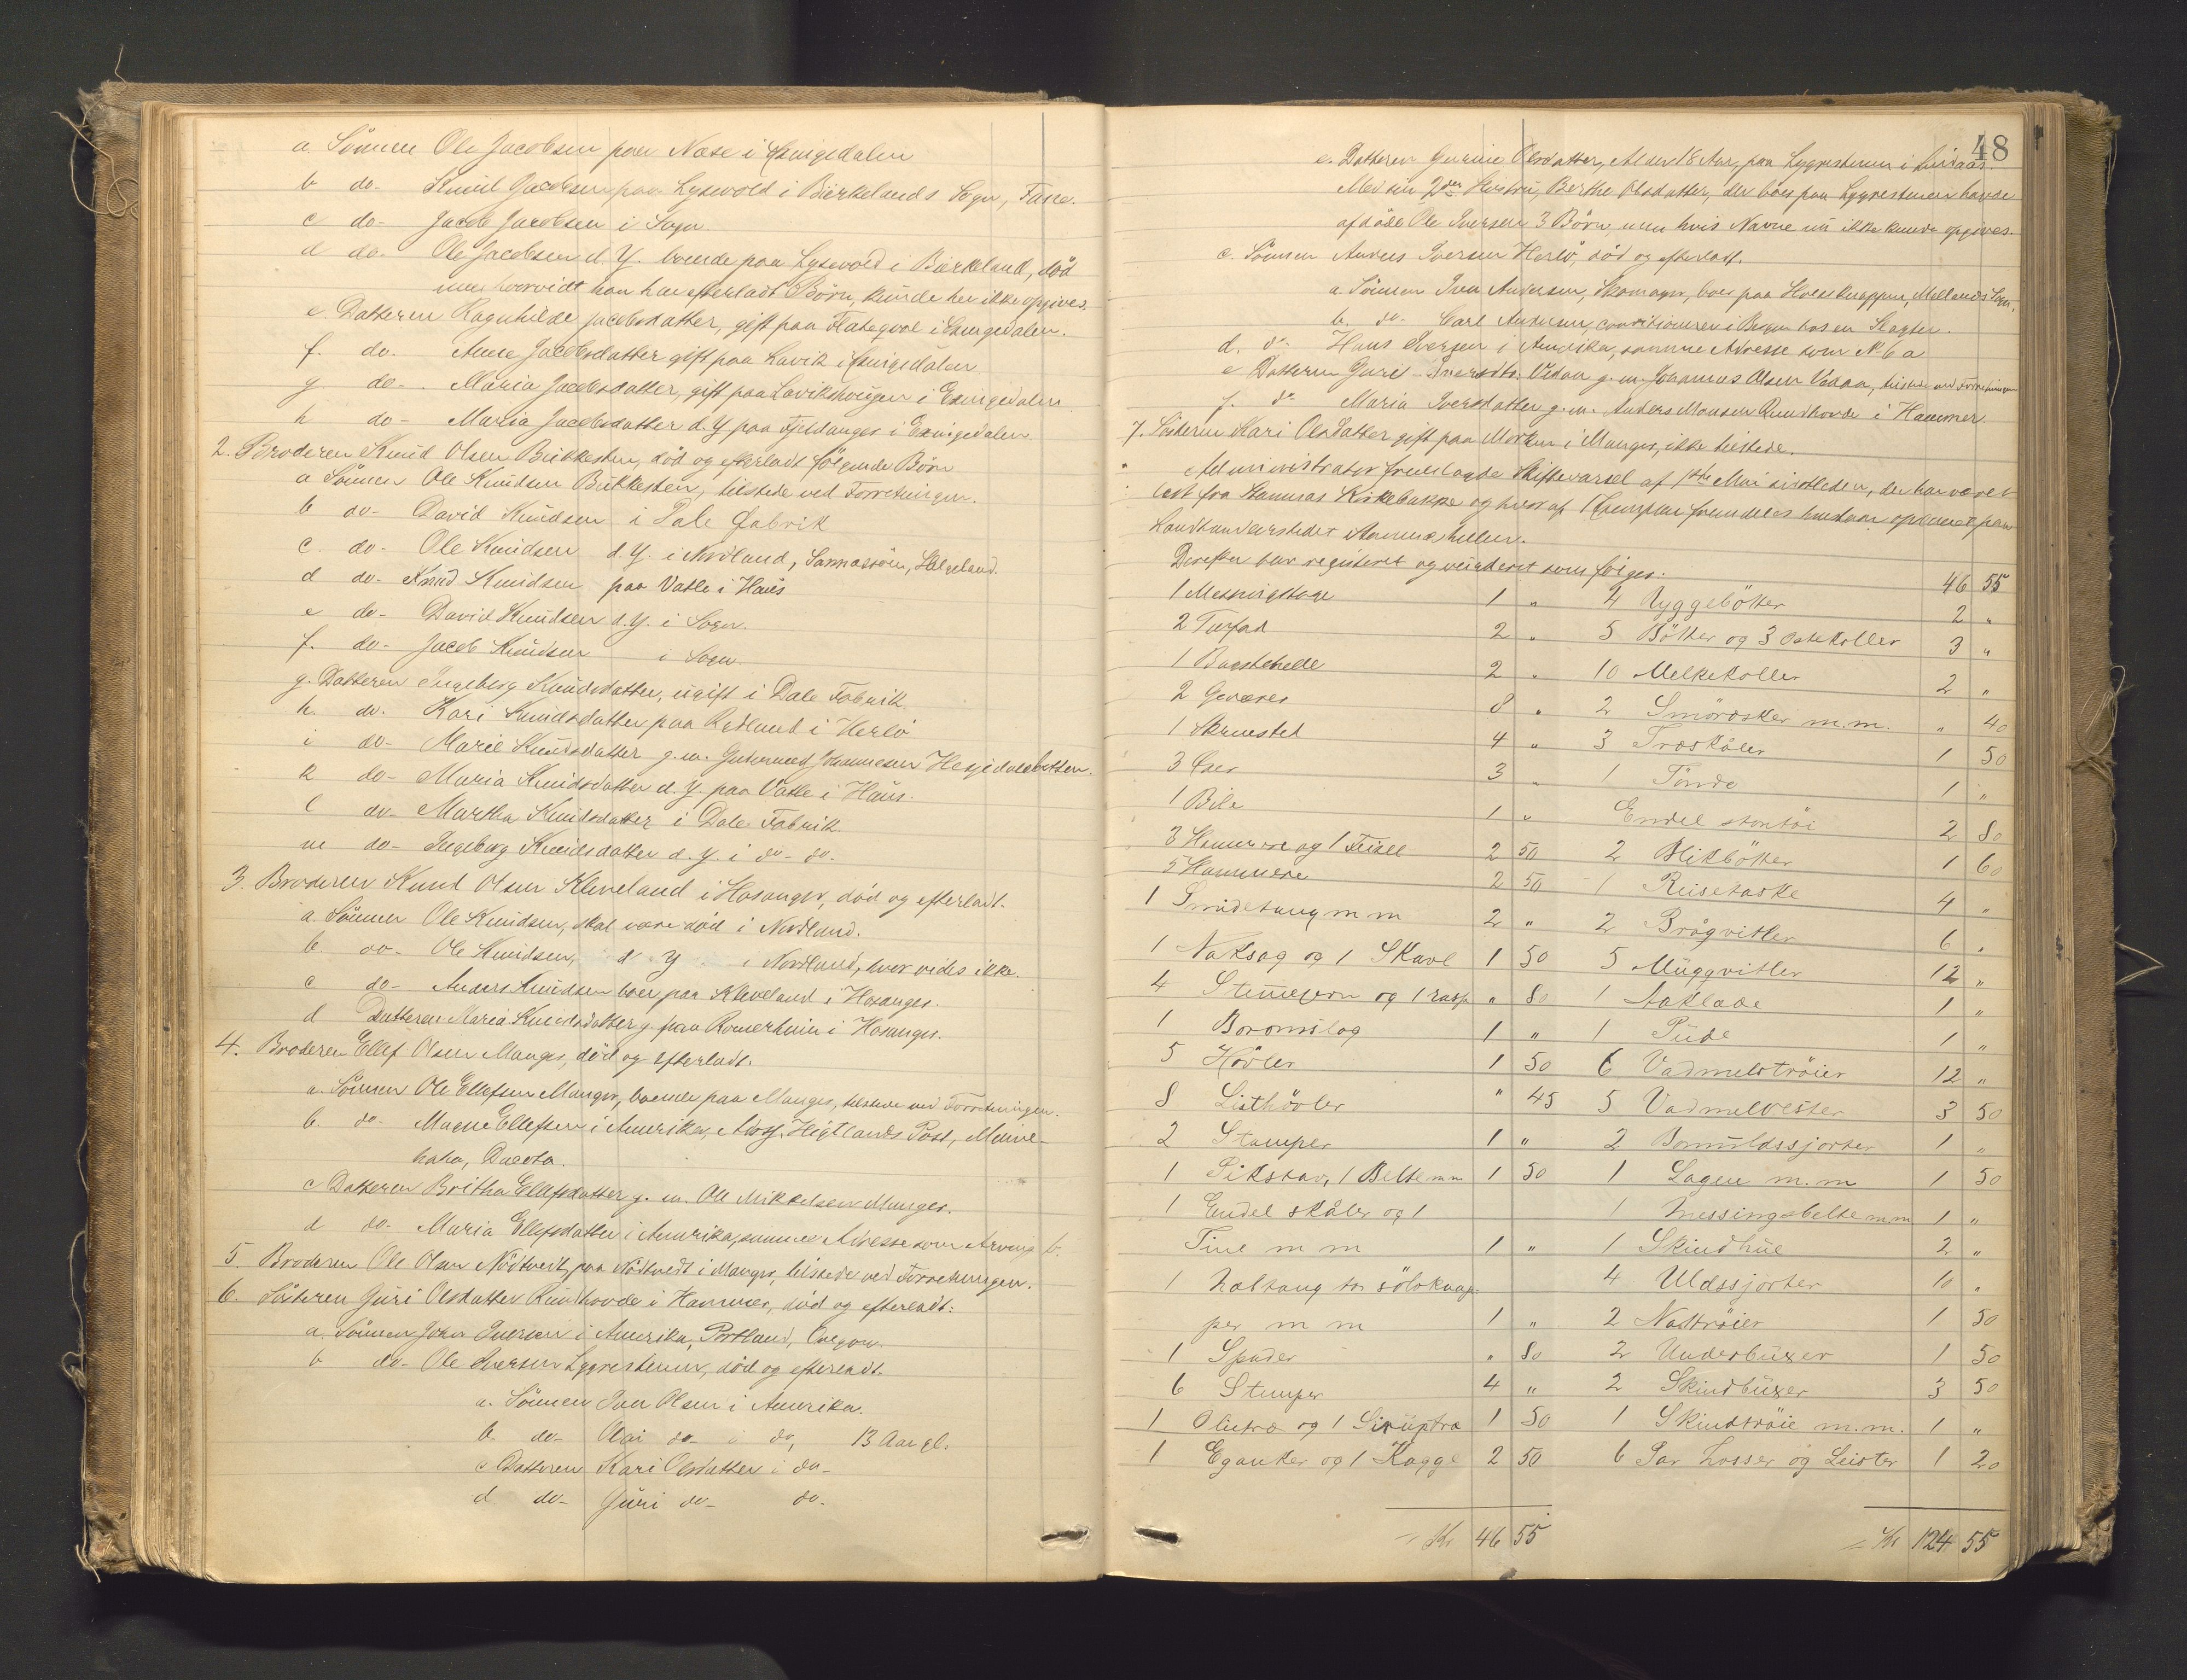 a. Sönnen Ole Jacobsen paa Næse i Exingedalen
b do- Knud Jacobsen paa Lysevold i Birkelands Sogn, Fane.
c do- Jacob Jacobsen i Sogn.
d do- Ole Jacobsen d. Y. boende paa Lysevold i Birkeland, död
men hvorvidt han har efterladt Börn, kunde her ikke opgives.
e. Datteren Ragnhilde Jacobsdatter, gift paa Flateqval i Exingedalen.
f. do. Anne Jacobsdatter gift paa Lavik i Exingedalen
g do-. Maria Jacobsdatter, gift paa Lavikshaugen i Exingedalen
h do- Maria Jacobsdatter d. Y paa Fjeldanger i Exingedalen.
2. Broderen Knud Olsen Bukkesten, död og efterladt fölgende Börn
a Sönnen Ole Knudsen Bukkesten, tilstede ved Forretningen.
b do- David Knudsen i Dale Fabrik
c. do- Ole Knudsen d. Y. i Nordland, Sannasöen, Helgeland.
d do- Knud Knudsen paa Vatle i Haus
e do- David Knudsen d. Y. i Sogn.
f. do- Jacob Knudsen i Sogn.
g. Datteren Ingeborg Knudsdatter, ugift i Dale Fabrik.
h. do. Kari Knudsdatter paa Rödland i Herlö
i do- Marie Knudsdatter g. m. Guttorm Johannesen Hesjedalsbotten.
k do- Maria Knudsdatter d. Y. paa Vatle i Haus.
l do- Martha Knudsdatter i Dale Fabrik.
m do- Ingeborg Knudsdatter d. Y. i do- do.
3. Broderen Knud Olsen Kleveland i Hosanger, död og efterladt.
a Sönnen Ole Knudsen, skal være död i Nordland.
b. do- Ole Knudsen, d Y i Nordland, hvor vides ikke.
c do- Anders Knudsen boer paa Kleveland i Hosanger.
d Datteren Maria Knudsdatter g. paa Romerheim i Hosanger.
4. Broderen Ellef Olsen Manger, död og efterladt.
a. Sönnen Ole Ellefsen Manger, boende paa Manger, tilstede ved Forretningen.
b. do- Magne Ellefsen i Amerika, Adrs. Higtlands Post, Minne-
haha, Dacota.
c Datteren Britha Ellefsdatter g. m. Ole Mikkelsen Manger.
d do- Maria Ellefsdatter i Amerika, samme Adresse som Arving b.
5. Broderen Ole Olsen Nödtvedt, paa Nödtvedt i Manger, tilstede ved Forretningen.
6. Sösteren Guri Olsdatter Rundhovde i Hammer, död og efterladt:
a. Sönnen John Iversen i Amerika, Portland, Oregon.
b do- Ole Iversen Lygrestenen, död og efterladt.
a. Sönnen Iver Olsen i Amerika.
b. do- do- i do, 13 Aar gl.
c Datteren Kari Olsdatter i do-
d do- Guri do- do.
48
e. Datteren Gurine Olsdatter, Alder 18 Aar, paa Lygrestenen i Lindaas.
Med sin 2den Hustru, Berthe Olsdatter, der boer paa Lygrestenen havde
afdöde Ole Iversen 3 Börn, men hvis Navne nu ikke kunde opgives.
c. Sönnen Anders Iversen Herlö, död og efterladt.
a. Sönnen Iver Andersen, Skomager, boer paa Mellands Sogn,
b. do- Carl Andersen, conditionerer i Bergen hos en Slagter.
d. do- Hans Iversen i Amerika, samme Adresse som No 6 a
e Datteren Guri Iversdtr. Vidaa g. m. Johannes Olsen Vidaa, tilstede ved Forretningen
f. do Maria Iversdatter g. m. Anders Monsen Rundhovde i Hammer.
7. Sösteren Kari Olsdatter gift paa Morken i Manger, ikke tilstede.
Administrator fremlagde Skiftevarsel af 1ste Mai sidstleden, der har været
læst fra Stamnæs Kirkebakke og hvoraf 1 Exemplar fremdeles har været opslaaet paa
Landhandlerstedet
Derefter blev registeret og vurderet som fölger:
46 55
1 Messingstage 1 " 4 Ryggebötter 2 "
2 2 " 5 Bötter og 3 Ostekoller 3 "
1 2 " 10 Melkekoller 2 "
2 Geværer 8 " 2 Smöræsker m.m. " 40
1 Skruestik 4 " 3 Træskåler 1 50
3 Öxer 3 " 1 Tönde 1 "
1 Bile 1 " Endel stentöi 2 80
3 Hammere og 1 2 50 2 Blikbötter 1 60
5 Hammere 2 50 1 Reisetaske 4 "
1 Smidetang m m 2 " 2 Brågvitler 6 "
1 Naksag og 1 Skavl 1 50 5 Muggvitler 12 "
4 Stemejern og 1 rasp " 80 1 Aaklæde 1 "
1 1 " 1 Pude 1 "
5 Hövler 1 50 6 Vadmelströier 12 "
8 Listhövler " 45 5 Vadmelvester 3 50
2 Stamper 1 " 2 Bomuldssjorter 1 "
1 Pikstav, 1 Belte mm 1 50 1 Lagen m.m 1 50
1 Endel skåler og 1 1 messingsbelte mm 1 "
Tine m m 1 " 1 Skindhue 2 "
1 for sölvknap- 4 Uldsjorter 10 "
per m m 1 " 2 Nattröier 1 50
1 Spader " 80 2 Underbuxer 1 50
6 Stumper 4 " 2 Skindbuxer 3 50
1 Olietræ og 1 Siruptræ 1 50 1 Skindtröie m.m. 1 "
1 Eganker og 1 Kagge 2 50 6 Par Losser og Leister 1 20
Kr 46 55 Kr 124 55